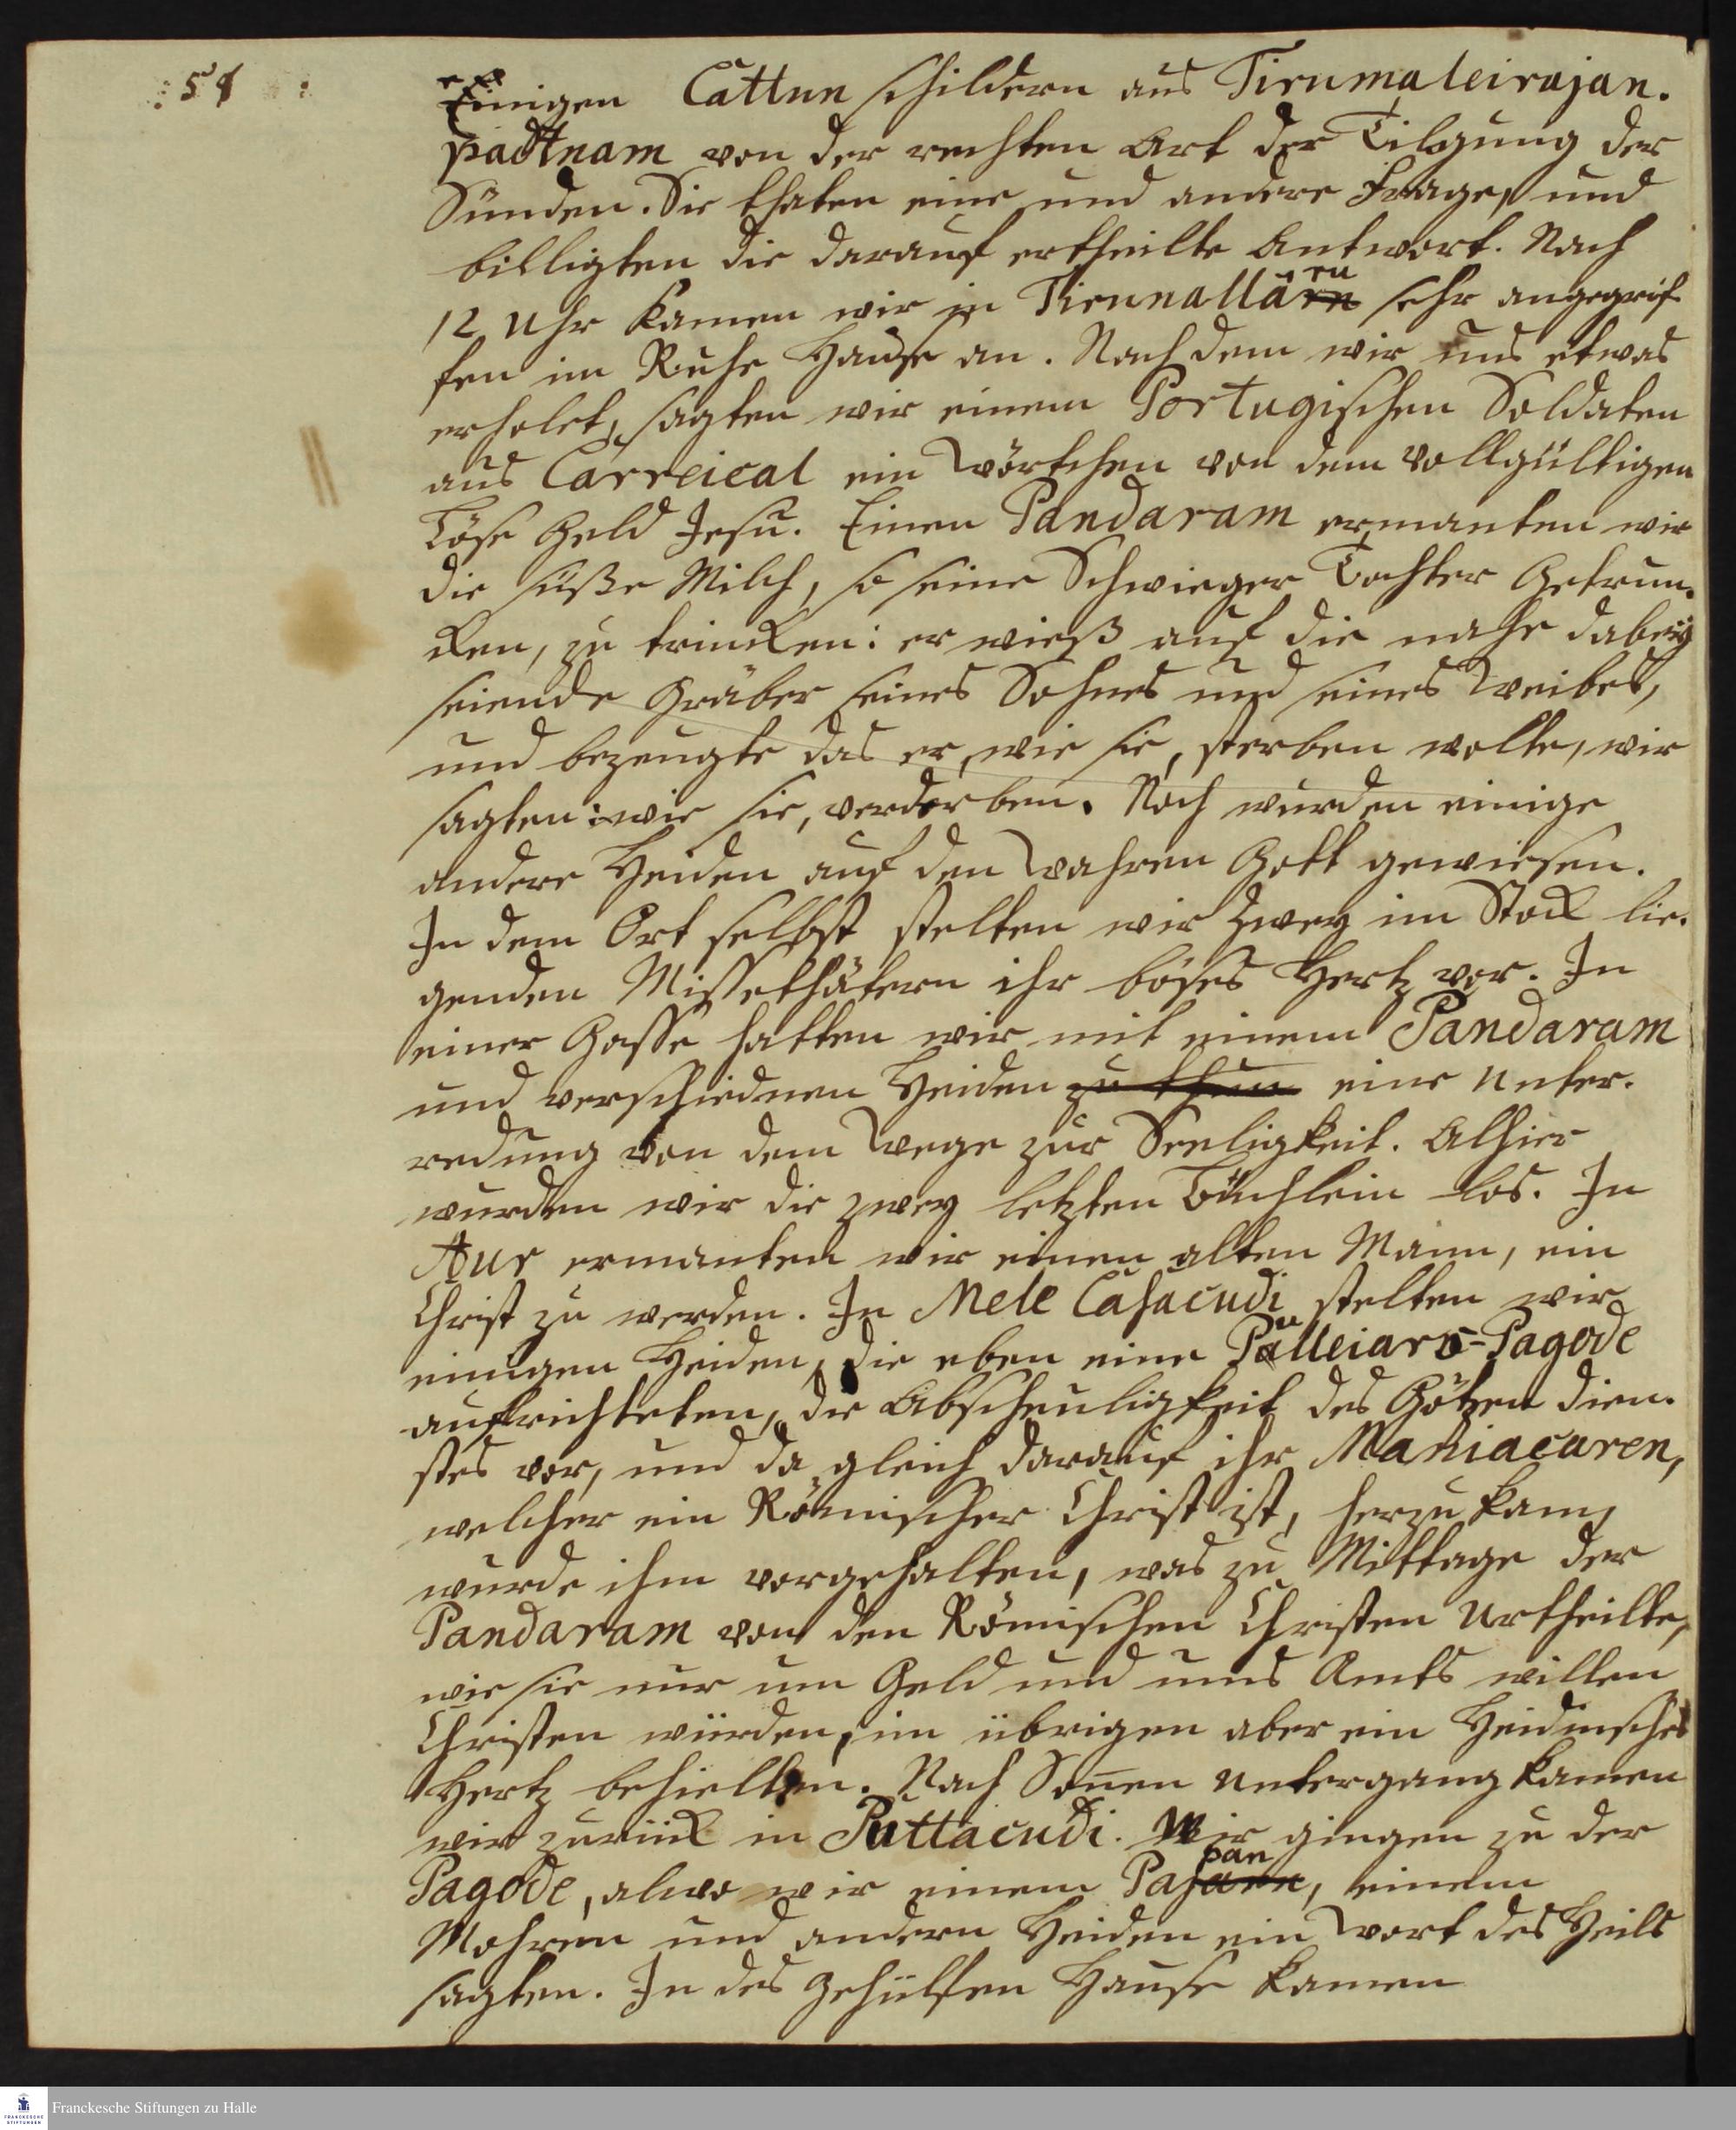 58
Einigen Cattun schildern aus Tirumaleirajan.
pattnam von der rechten Art der Tilgung der
Sünden. Sie thaten eine und andere Frage, und
billigten die darauf ertheilte Antwort. Nach
12 Uhr kamen wir in Tirunallâru sehr angegrif-
fen im Ruhe Hause an. Nachdem wir uns etwas
erholet, sagten wir einem Portugischen Soldaten
aus Carreical ein Wörtchen von dem vollgültigen
Löse Geld Jesu. Einen Pandaram ermanten wir
die süße Milch, so seine Schwieger Tochter Getrun-
cken, zu trincken: er wieß auf die nahe dabey
seiende Gräber seines Sohnes und seines Weibes,
und bezeugte das er, wie sie, sterben wolte, wir
sagten: wie sie, verderben. Noch wurden einige
andere Heiden auf den Wahren Gott gewiesen.
In dem Ort selbst stelten wir Zwey im Stock lie-
genden Missethätern ihr böses Hertz vor. In
einer Gasse hatten wir mit einem Pandaram
und verschiednen Heiden zu thun eine Unter-
redung von dem Wege zur Seeligkeit. Alhier
wurden wir die zwey letzten Büchlein los. In
Aur ermanten wir einen alten Mann, ein
Christ zu werden. In Mele Casacudi stelten wir
einigen Heiden, die eben eine Pulleiars-Pagode
aufrichteten, die Abscheuligkeit des Götzen dien-
stes vor, und da gleich darauf ihr Maniacaren,
welcher ein Römischer Christ ist, herzu kam,
wurde ihm vorgehalten, was zu Mittage der
Pandaram von den Römischen Christen Urtheilte,
wie sie nur um Geld und ums Amts willen
Christen würden, im übrigen aber ein Heidnisches
Hertz behielten. Nach Sonen Untergang kamen
wir zurück in Puttacudi. Wir gingen zu der
Pagode, alwo wir einem Paj̶a̶r̶e̶n̶ pan, einem
Mohren und andern Heiden ein Wort des Heils
sagten. In des Gehülfen Hause kamen
Franckesche Stiftungen zu Halle